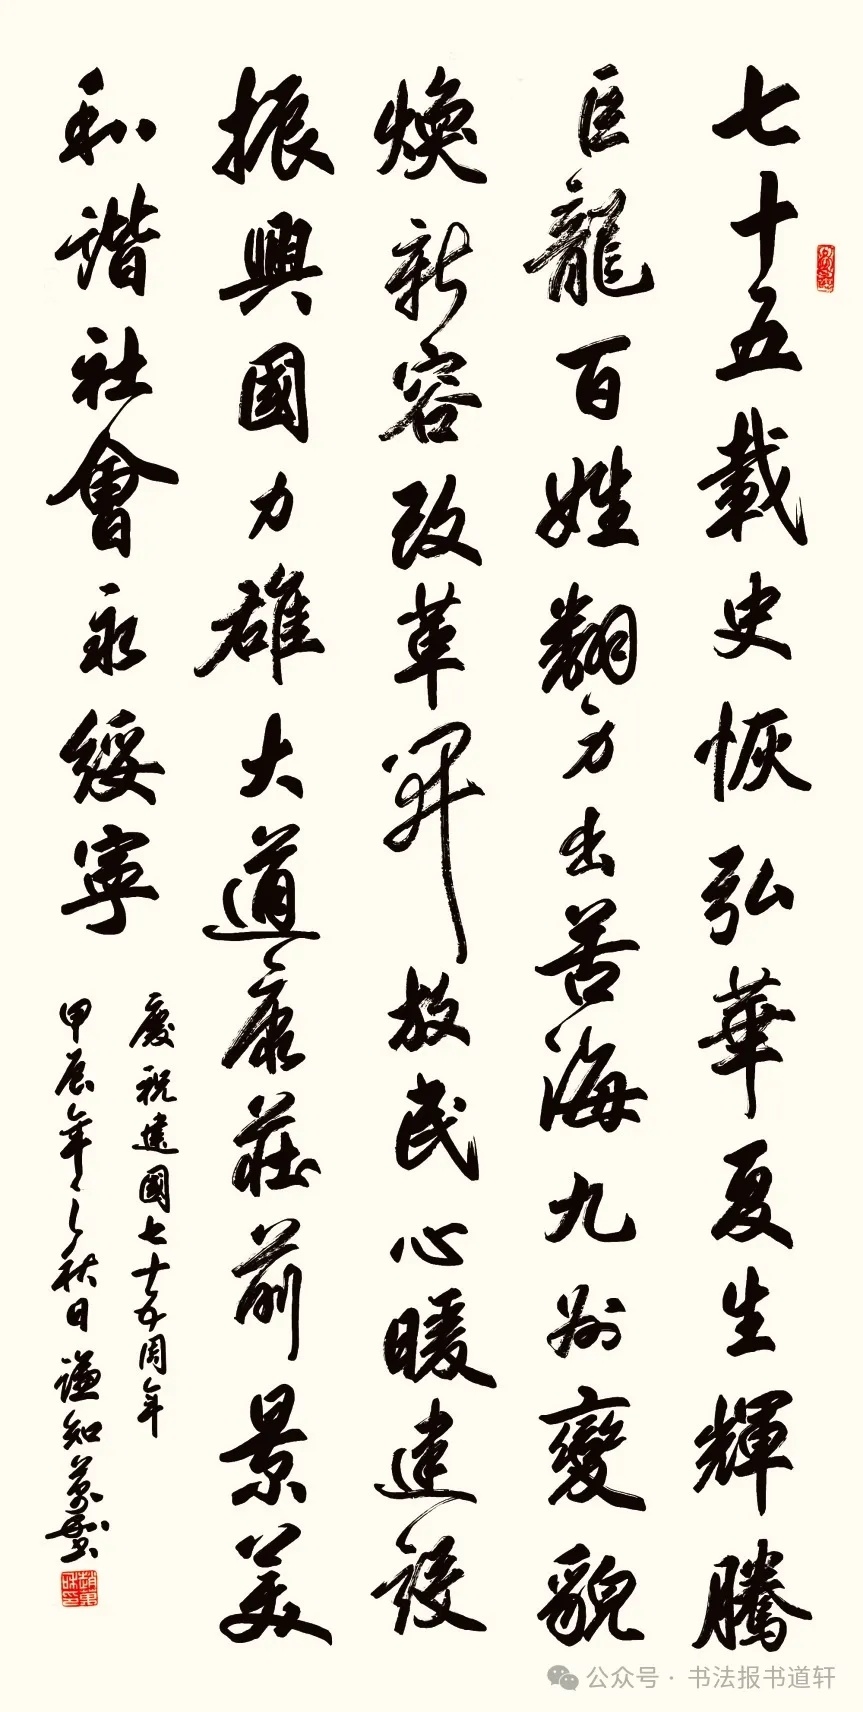 七十五載史恢弘華夏生輝騰
巨龍百姓翻身出苦海九州變貌
煥新容改革開放民心暖建設
振興國力雄大道康莊前景美
和諧社會永綏寧
慶祝建國七十五周年
甲辰年之秋日謙知
公众号 · 书法报书道轩